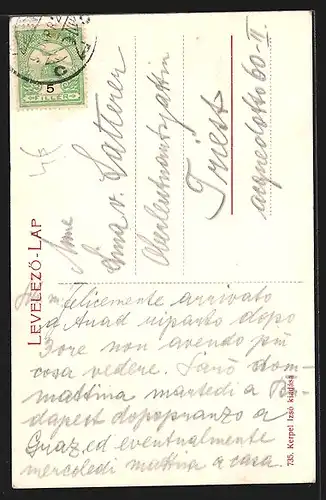 5
FILLER
C
LEVELEZŐ-LAP
Lina v. Latterer
Oberleutnantsgattin
Triest
acquedotto 60-II
Felicemente arrivato
a Arad riparto dopo
3 ore non avendo più
cosa vedere. Sarò dom-
mattina martedì a Bu-
dapest dopopranzo a
Graz, ed eventualmente
mercoledì mattina a casa.
735. Kerpel Izsó kiadása